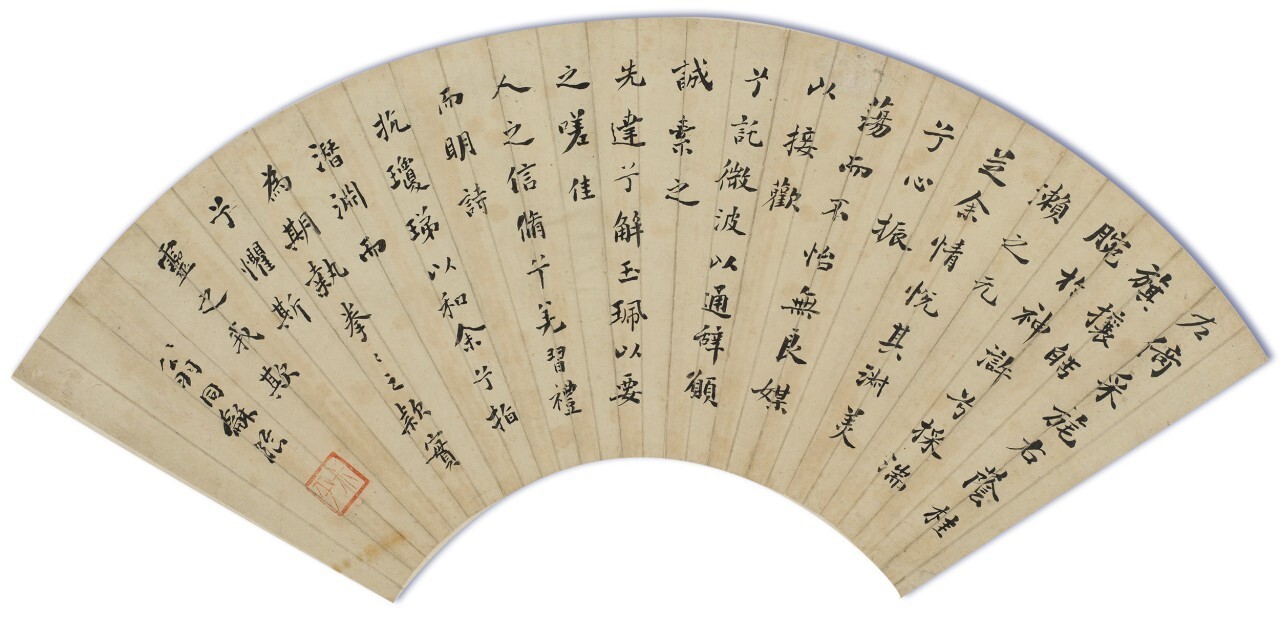 左倚采旄右蔭桂
旗攘皓
腕於神滸兮採湍
瀨之元
芝余情悅其淑美
兮心振
蕩而不怡無良媒
以接歡
兮託微波以通辭願
誠素之
先達兮解玉珮以要
之嗟佳
人之信脩兮羌習禮
而明詩
抗瓊珶以和余兮指
潛淵而
為期執拳〻之款實
兮懼斯
靈之我欺
翁同龢臨